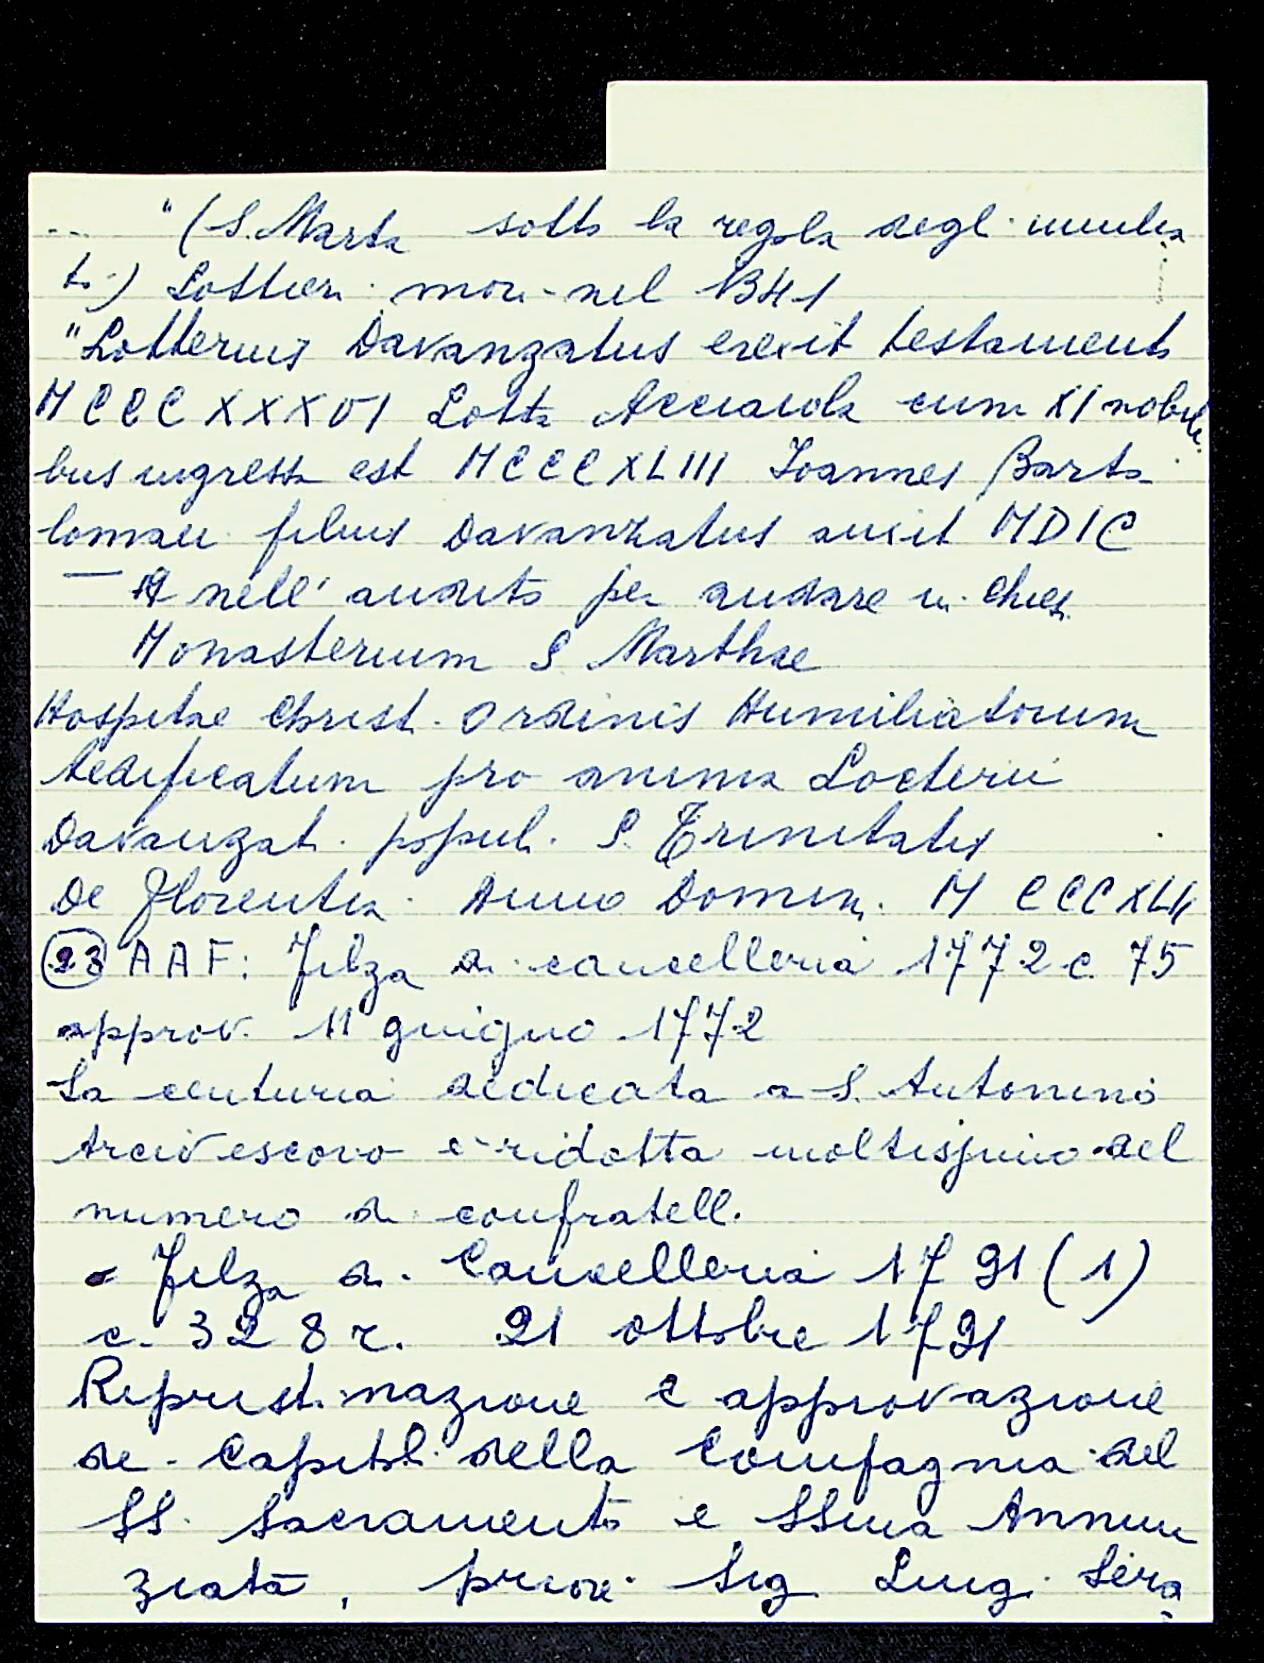 ... "(S. Marta sotto la regola degli umilia
ti) Lottieri morì nel 1341
"Lotterius Davanzatus erexit testamento
MCCCXXXVI Lotta Acciaiola cum XI nobili
bus ingressa est MCCCXLIII Ioannes Barto
lomaei filius Davanzatus auxit MDIC
— A nell' andito per andare in chiesa
Monasterium S Marthae
Hospitae Christi Ordinis Humiliatorum
Aedificatum pro anima Locterii
Davanzati popul. S. Trinitatis
De Florentia. Anno Domini M CCCXLII
(23) AAF: Filza di cancelleria 1772 c. 75
approv. 11 giugno 1772
La centuria dedicata a S. Antonino
Arcivescovo è ridotta moltissimo del
numero di confratelli.
- Filza di Cancelleria 1791 (1)
c. 328 r. 21 ottobre 1791
Ripristinazione e approvazione
dei Capitoli della Compagnia del
SS. Sacramento e SSma Annun
ziata, priore Sig Luigi Sera